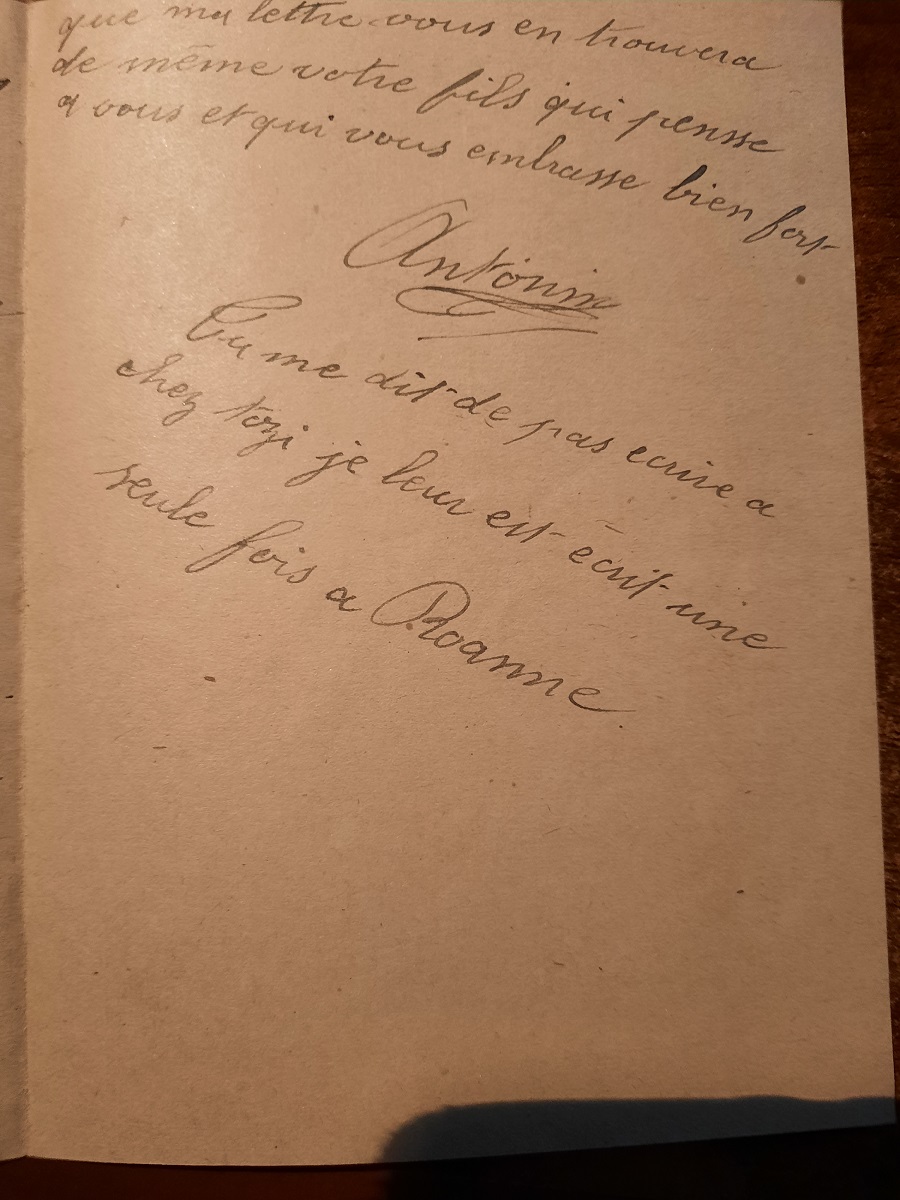 que ma lettre vous en trouvera
de même votre fils qui pensse
a vous et qui vous embrasse bien fort
Antonin
Tu me dit de pas ecrire a
chez je leur est écrit une
seule fois a Roanne